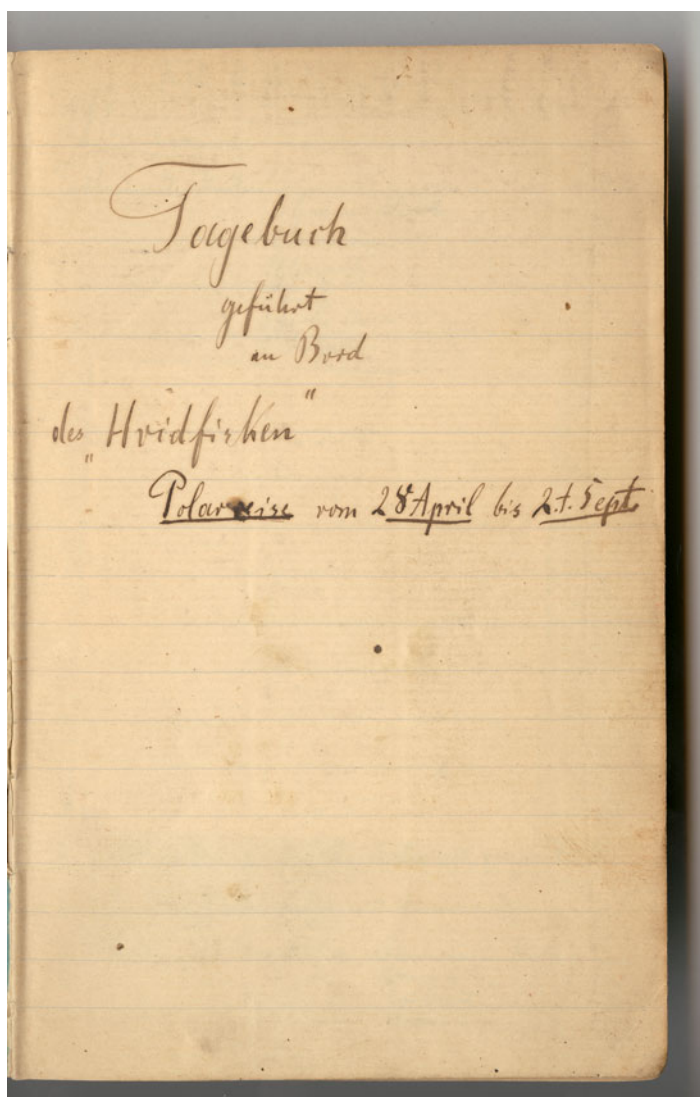 Tagebuch
geführt
an Bord
des „Hvidfisken"
Polarreise vom 28 April bis Sept.